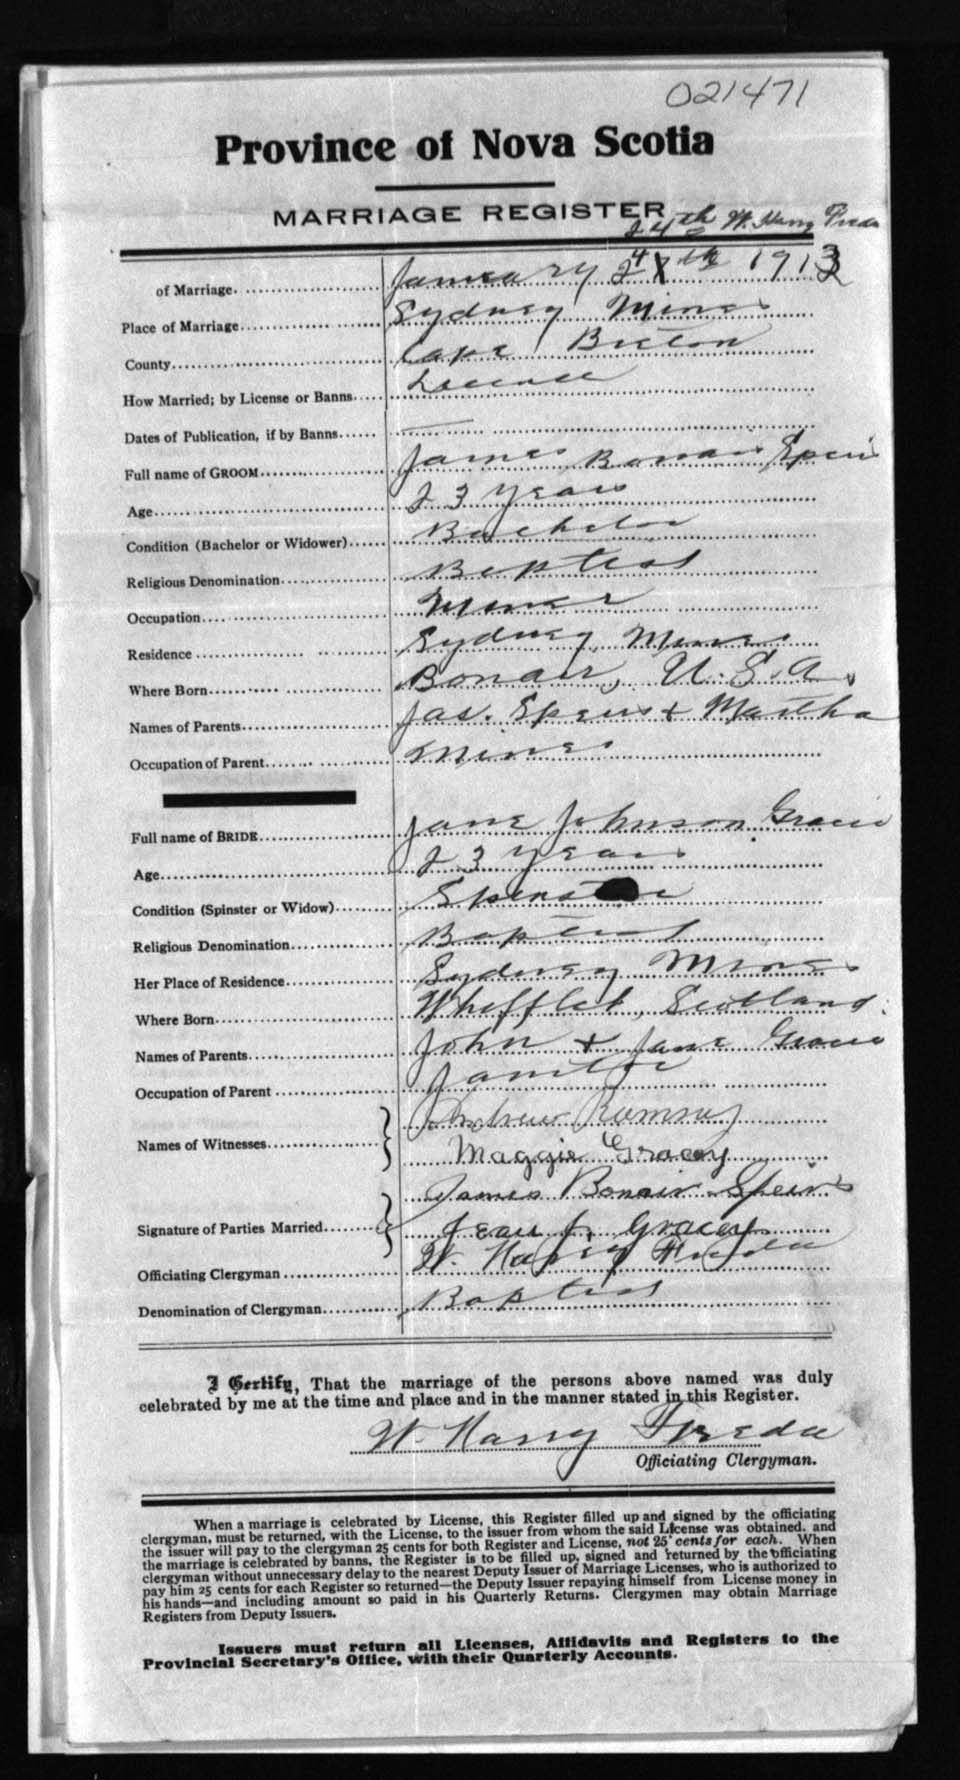 021471
Province of Nova Scotia
MARRIAGE REGISTER
24th W. Harry Freda
of Marriage. January 24th 1913
Place of Marriage Sydney Mines
County Cape Breton
How Married; by License or Banns License
Dates of Publication, if by Banns
Full name of GROOM James Bonair Speirs
Age 23 years
Condition (Bachelor or Widower) Bachelor
Religious Denomination Baptist
Occupation Miner
Residence Sydney Mines
Where Born Bonair, U.S.A.
Names of Parents Jas. Speirs + Martha
Occupation of Parent Miner
Full name of BRIDE Jane Johnson Gracie
Age 23 years
Condition (Spinster or Widow) Spinster
Religious Denomination Baptist
Her Place of Residence Sydney Mines
Where Born Whifflet, Scotland.
Names of Parents John + Jane Gracie
Occupation of Parent Janitor
Names of Witnesses Andrew Ramsay
Maggie Gracey
James Bonair Speirs
Signature of Parties Married Jean J. Gracey
Officiating Clergyman W. Harry Freda
Denomination of Clergyman Baptist
I Certify, That the marriage of the persons above named was duly
celebrated by me at the time and place and in the manner stated in this Register.
W. Harry Freda
Officiating Clergyman.
When a marriage is celebrated by License, this Register filled up and signed by the officiating
clergyman, must be returned, with the License, to the issuer from whom the said License was obtained, and
the issuer will pay to the clergyman 25 cents for both Register and License, not 25 cents for each. When
the marriage is celebrated by banns, the Register is to be filled up, signed and returned by the officiating
clergyman without unnecessary delay to the nearest Deputy Issuer of Marriage Licenses, who is authorized to
pay him 25 cents for each Register so returned—the Deputy Issuer repaying himself from License money in
his hands—and including amount so paid in his Quarterly Returns. Clergymen may obtain Marriage
Registers from Deputy Issuers.
Issuers must return all Licenses, Affidavits and Registers to the
Provincial Secretary's Office, with their Quarterly Accounts.